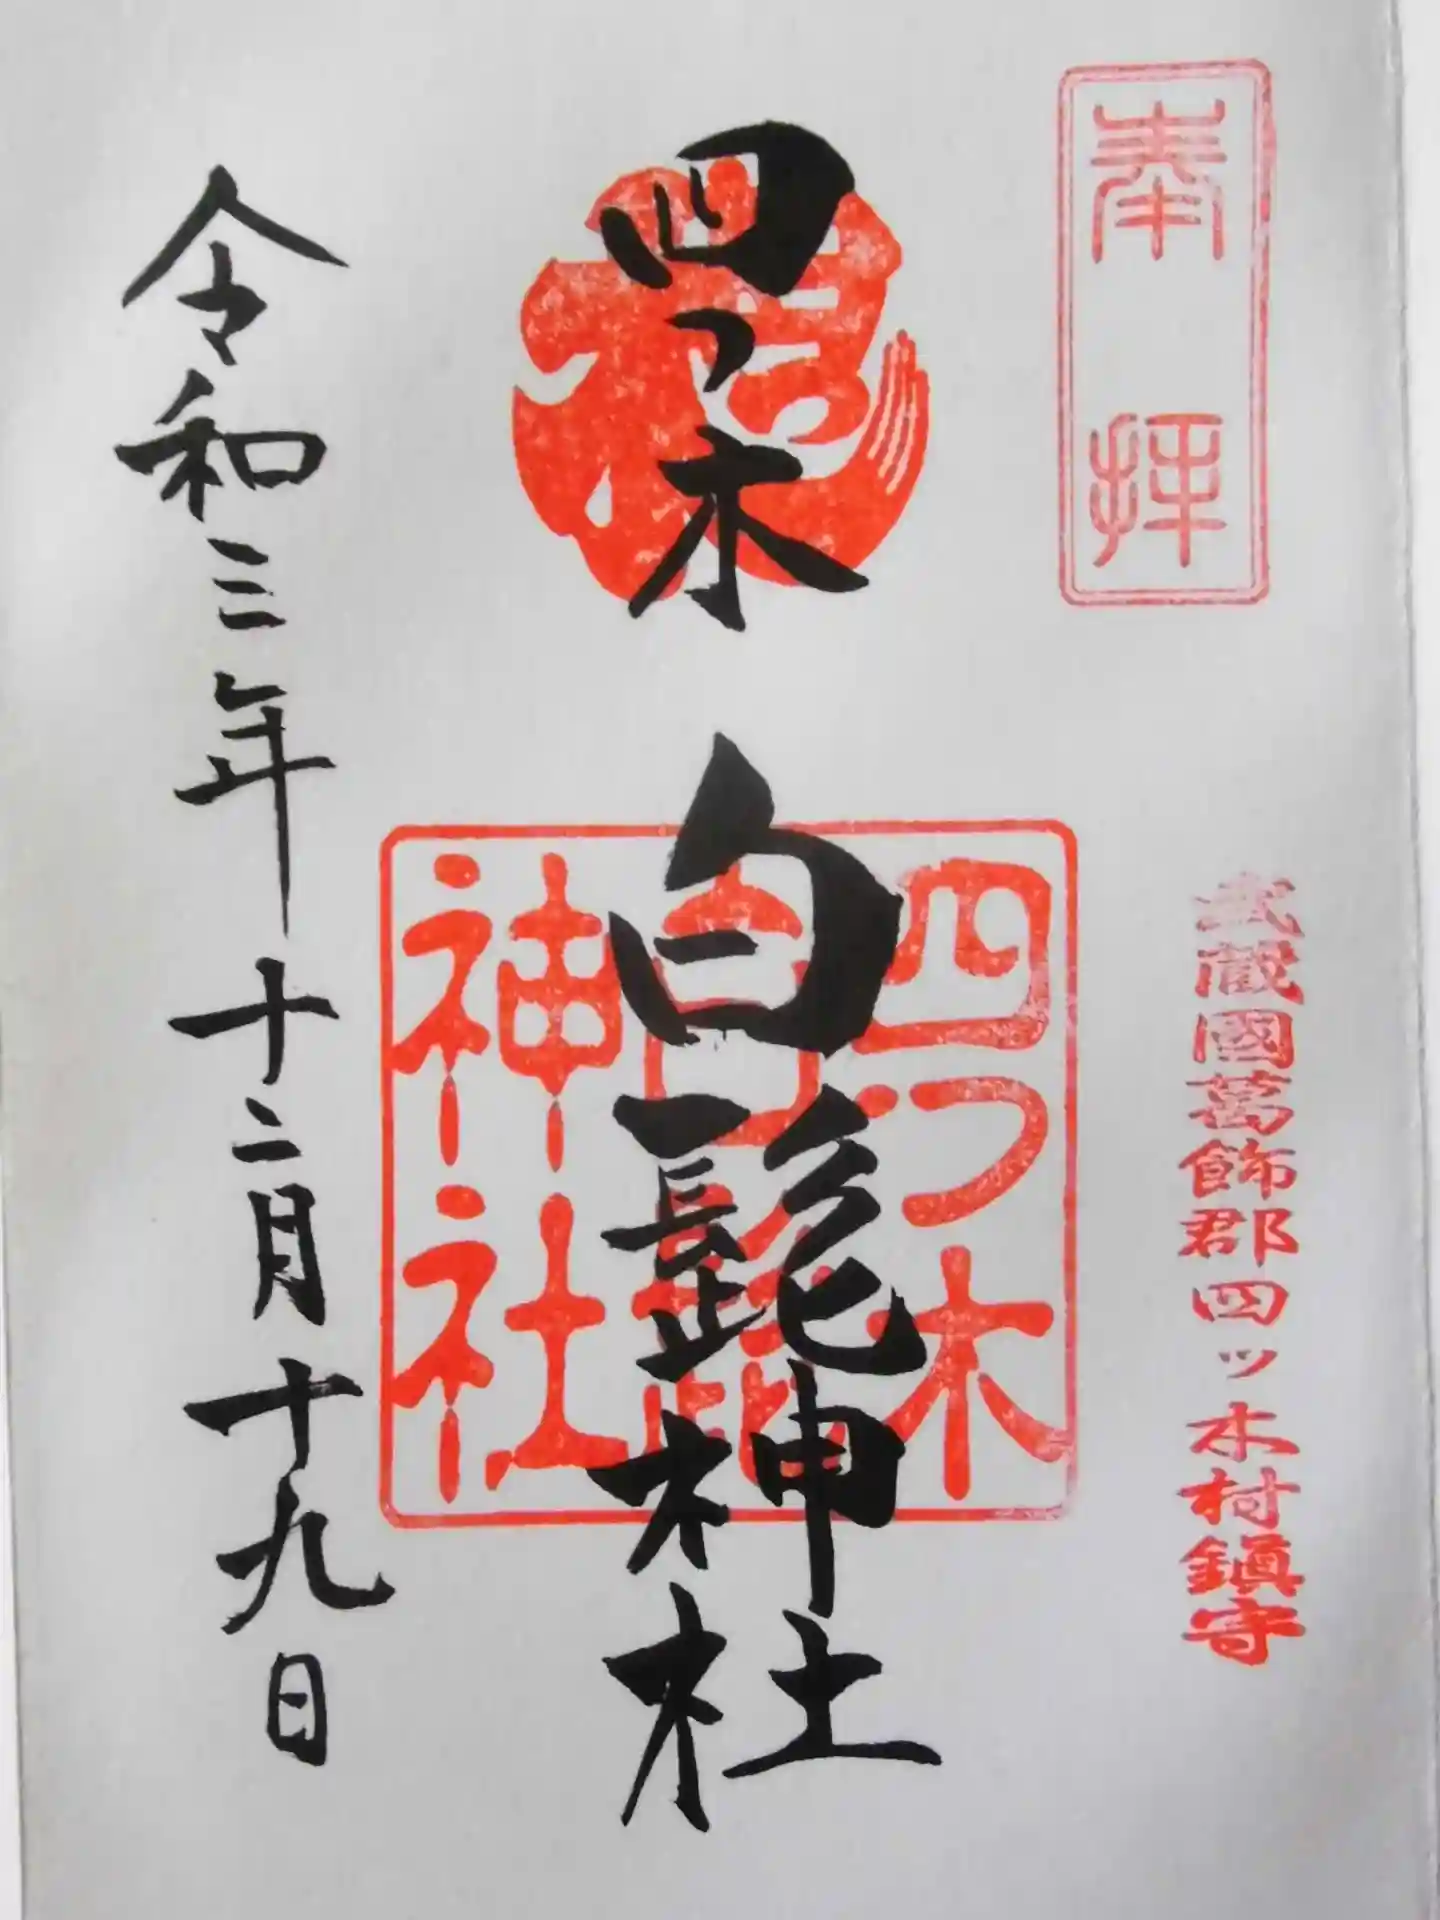 奉拝
武蔵國葛飾郡四ッ木村鎮守
四つ木白髭神社
四つ木
白髭
神社
令和三年十二月十九日